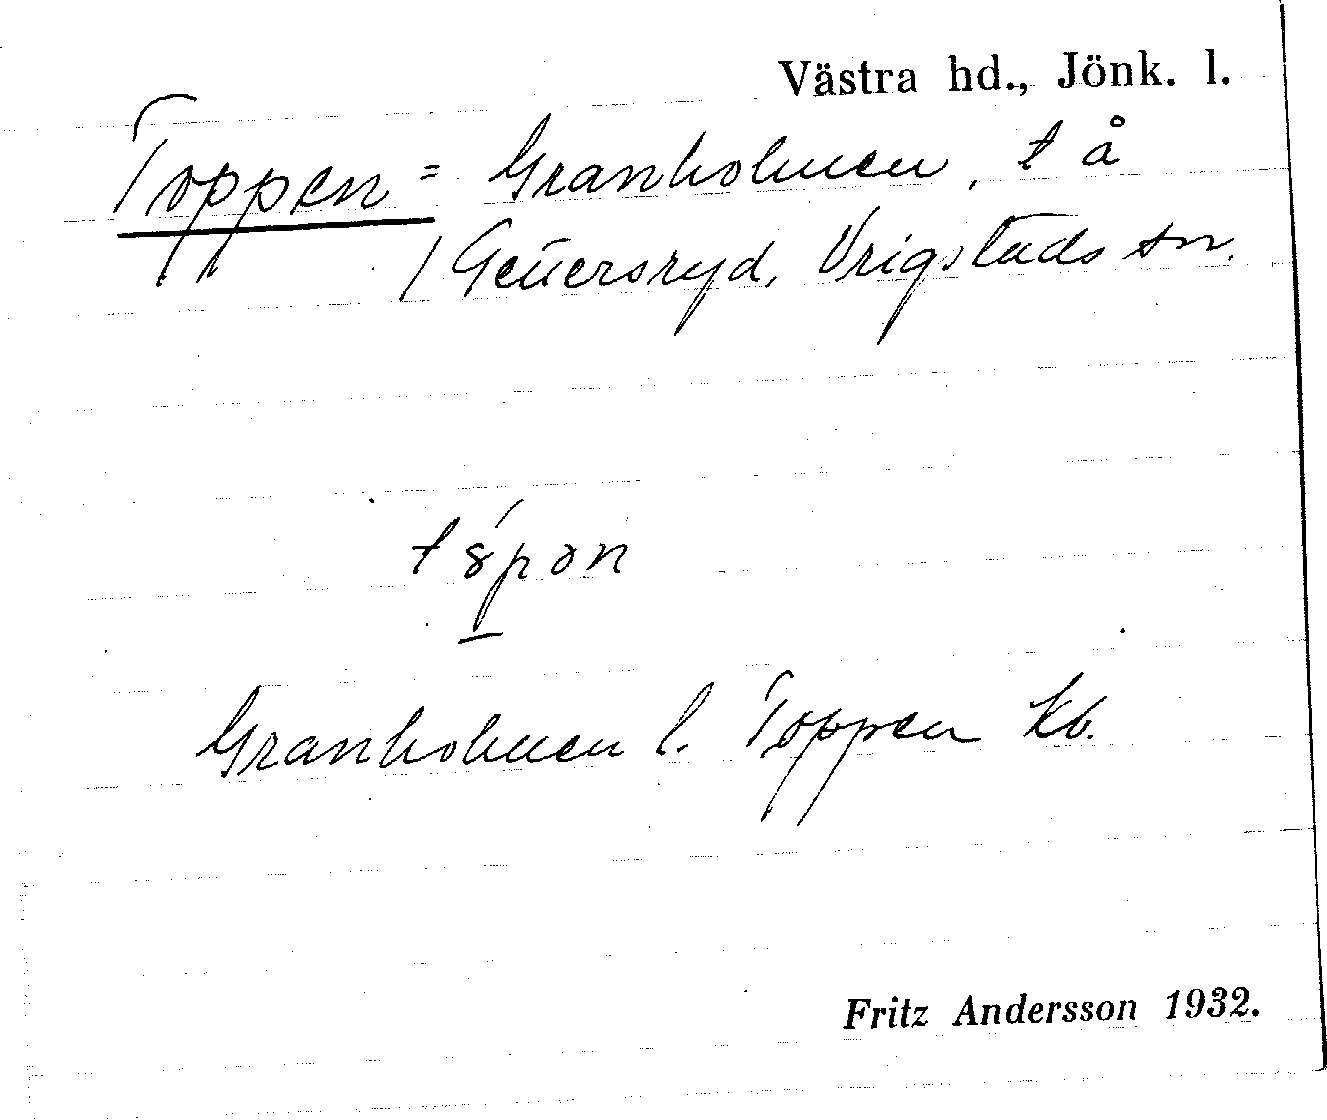 Västra hd., Jönk. l.
Toppen = Granholmen, t å
/ Geuersryd, Vrigstads sn.
Granholmen l. Toppen Kb.
Fritz Andersson 1932.